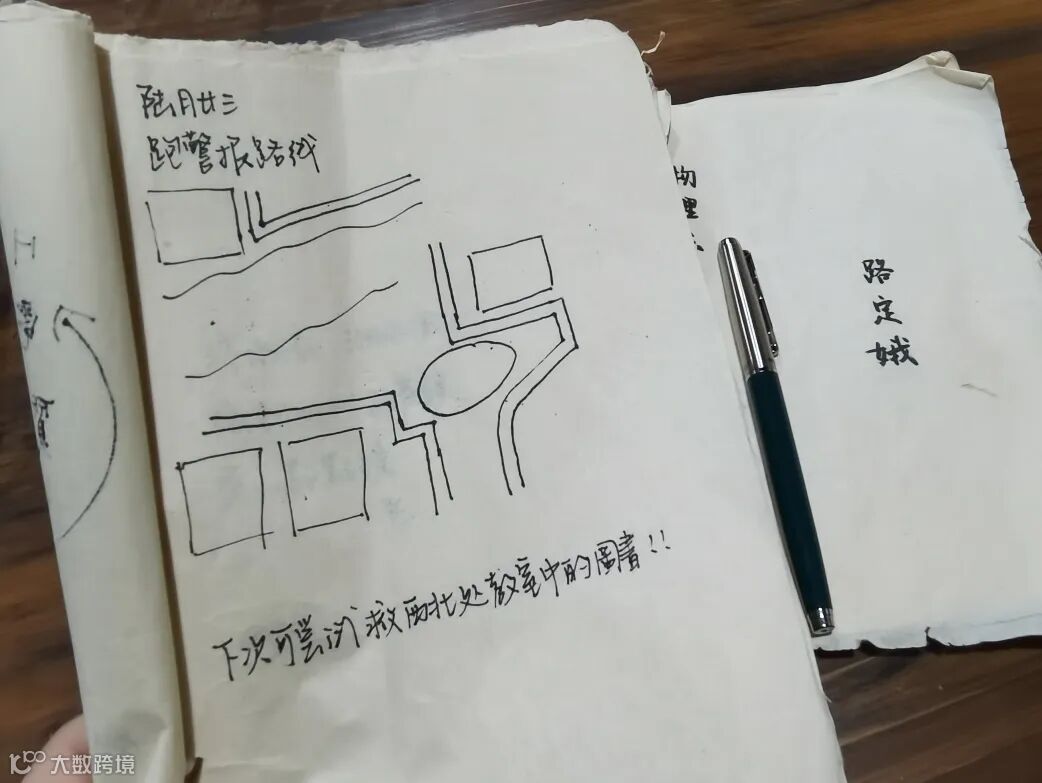 陆月廿三
跑警报路线
下次可尝试救西北处教室中的圖書!!
物理
路定娥
大数跨境